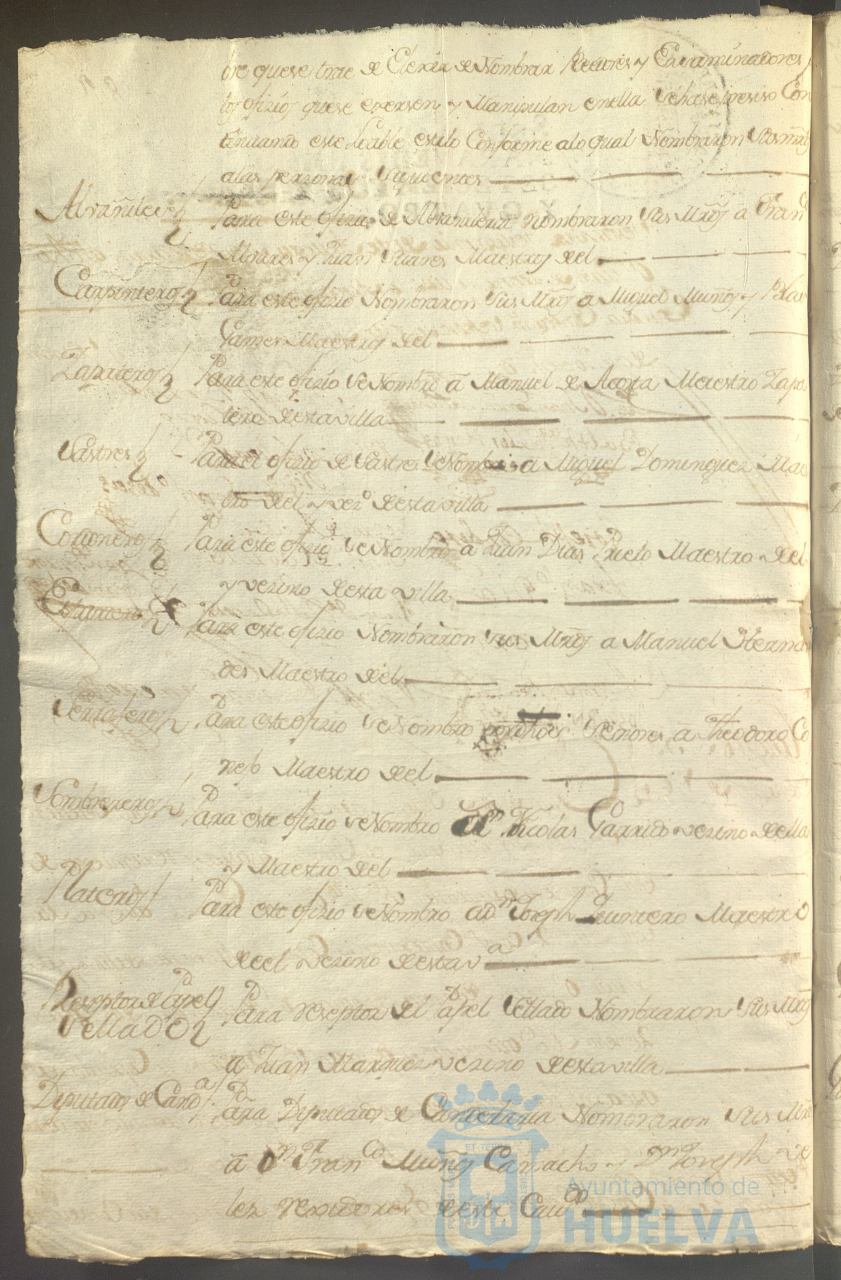 bre que se trae de Elexir de Nombrar Veedores y Examinadores
los ofizios que se exersen y Manipulan en ella Con
tinuando este loable estilo Conforme a lo qual Nombraron Sus mrds
a las personas siguientes
Alvañiles Para este ofizio de Alvañileria nombraron Sus Mrds a Franco
Moriares y Juan Suares Maestros del
Carpinteros Para este ofizio Nombraron Sus Mrds a Miguel Muños y Blas
Gomes Maestros del
Zapateros Para este ofizio Se Nombro a Manuel de Acosta Maestro Zapa
tero desta villa
Sastres Para el ofizio de Sastres Se Nombro a Miguel Dominguez Mae
tro del y vezo desta villa
Para este ofizio Se Nombro a Juan Dias Prieto Maestro del
y vezino desta villa
Para este ofizio Nombraron Sus Mrds a Manuel Herna
des Maestro del
Serrajeros Para este ofizio Se Nombro por dhos Señores a Theodoro Co
nejo Maestro del
Sombrereros Para este ofizio Se Nombro Nicolas Garrido vezino della
y Maestro del
Plateros Para este ofizio Se Nombro a dn Joseph Quintero Maestro
del vezino desta va
Reseptor de Papel
Sellado Para reseptor del Papel Sellado Nombraron Sus Mrds
a Juan Marques vezino desta villa
Diputados de Carna Para Diputados de Nombraron Sus Mrds
a Dn Franco Muños Camacho y Dn Joseph
lez rexidores deste Cavdo
Ayuntamiento de
HUELVA